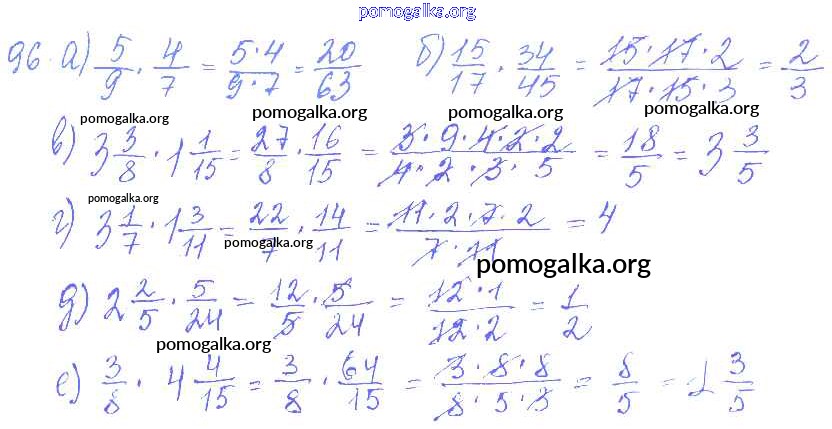 pomogalka.org
96. а) 5/9 · 4/7 = 5·4/9·7 = 20/63 б) 15/17 · 34/45 = 15·17·2/17·15·3 = 2/3
pomogalka.org pomogalka.org pomogalka.org
в) 3 3/8 · 1 1/15 = 27/8 · 16/15 = 3·9·4·2·2/4·2·3·5 = 18/5 = 3 3/5
pomogalka.org
г) 3 1/7 · 1 3/11 = 22/7 · 14/11 = 11·2·7·2/7·11 = 4
pomogalka.org
pomogalka.org
д) 2 2/5 · 5/24 = 12/5 · 5/24 = 12·1/12·2 = 1/2
pomogalka.org
е) 3/8 · 4 4/15 = 3/8 · 64/15 = 3·8·8/8·5·3 = 8/5 = 1 3/5